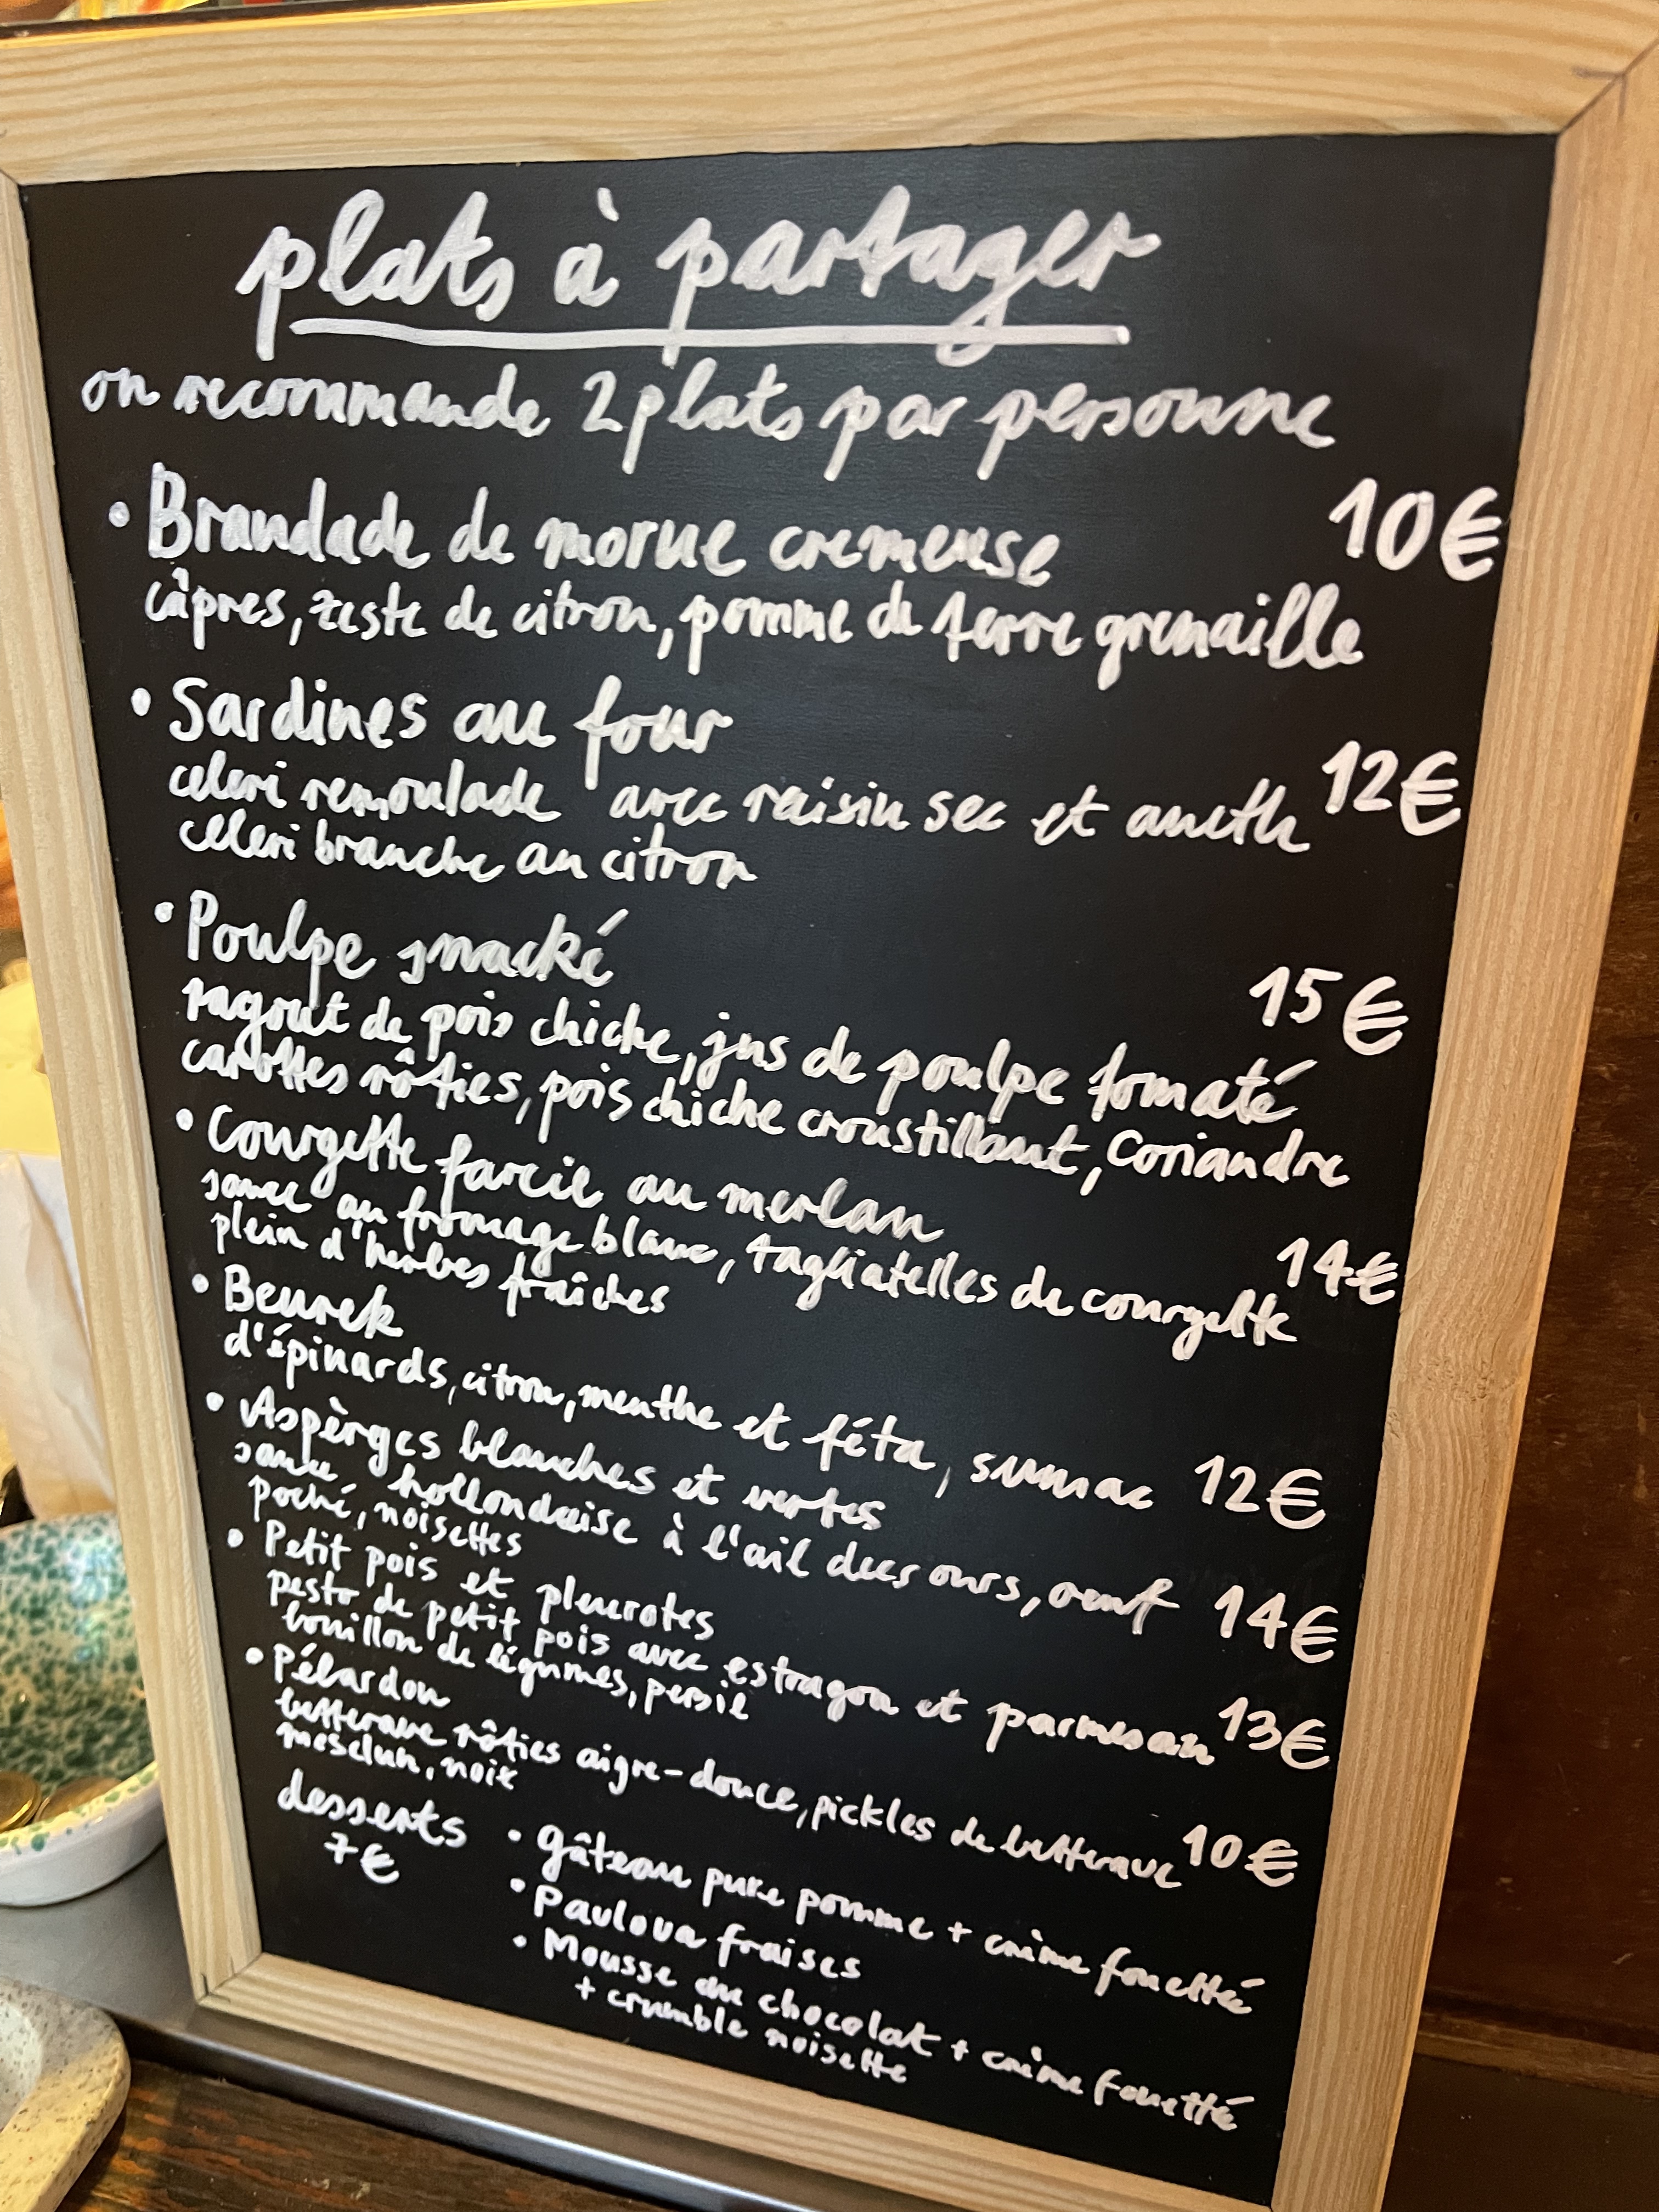 plats à partager
on recommande 2 plats par personne
• Brandade de morue cremeuse 10€
câpres, zeste de citron, pomme de terre grenaille
• Sardines au four
celeri remoulade avec raisin sec et aneth 12€
celeri branche au citron
• Poulpe snacké 15€
ragout de pois chiche, jus de poulpe tomaté
carottes rôties, pois chiche croustillant, coriandre
• Courgette farcie au merlan 14€
sauce au fromage blanc, tagliatelles de courgette
plein d'herbes fraîches
• Beurek
d'épinards, citron, menthe et féta, sumac 12€
• Aspèrges blanches et vertes
sauce hollondaise à l'ail des ours, oeuf 14€
poché, noisettes
• Petit pois et pleurotes
pesto de petit pois avec estragon et parmesan 13€
bouillon de légumes, persil
• Pélardon
betterave rôties aigre-douce, pickles de betterave 10€
mesclun, noix
desserts • gâteau pure pomme + crème fouettée
7€ • Pavlova fraises
• Mousse au chocolat + crème fouetté
+ crumble noisette